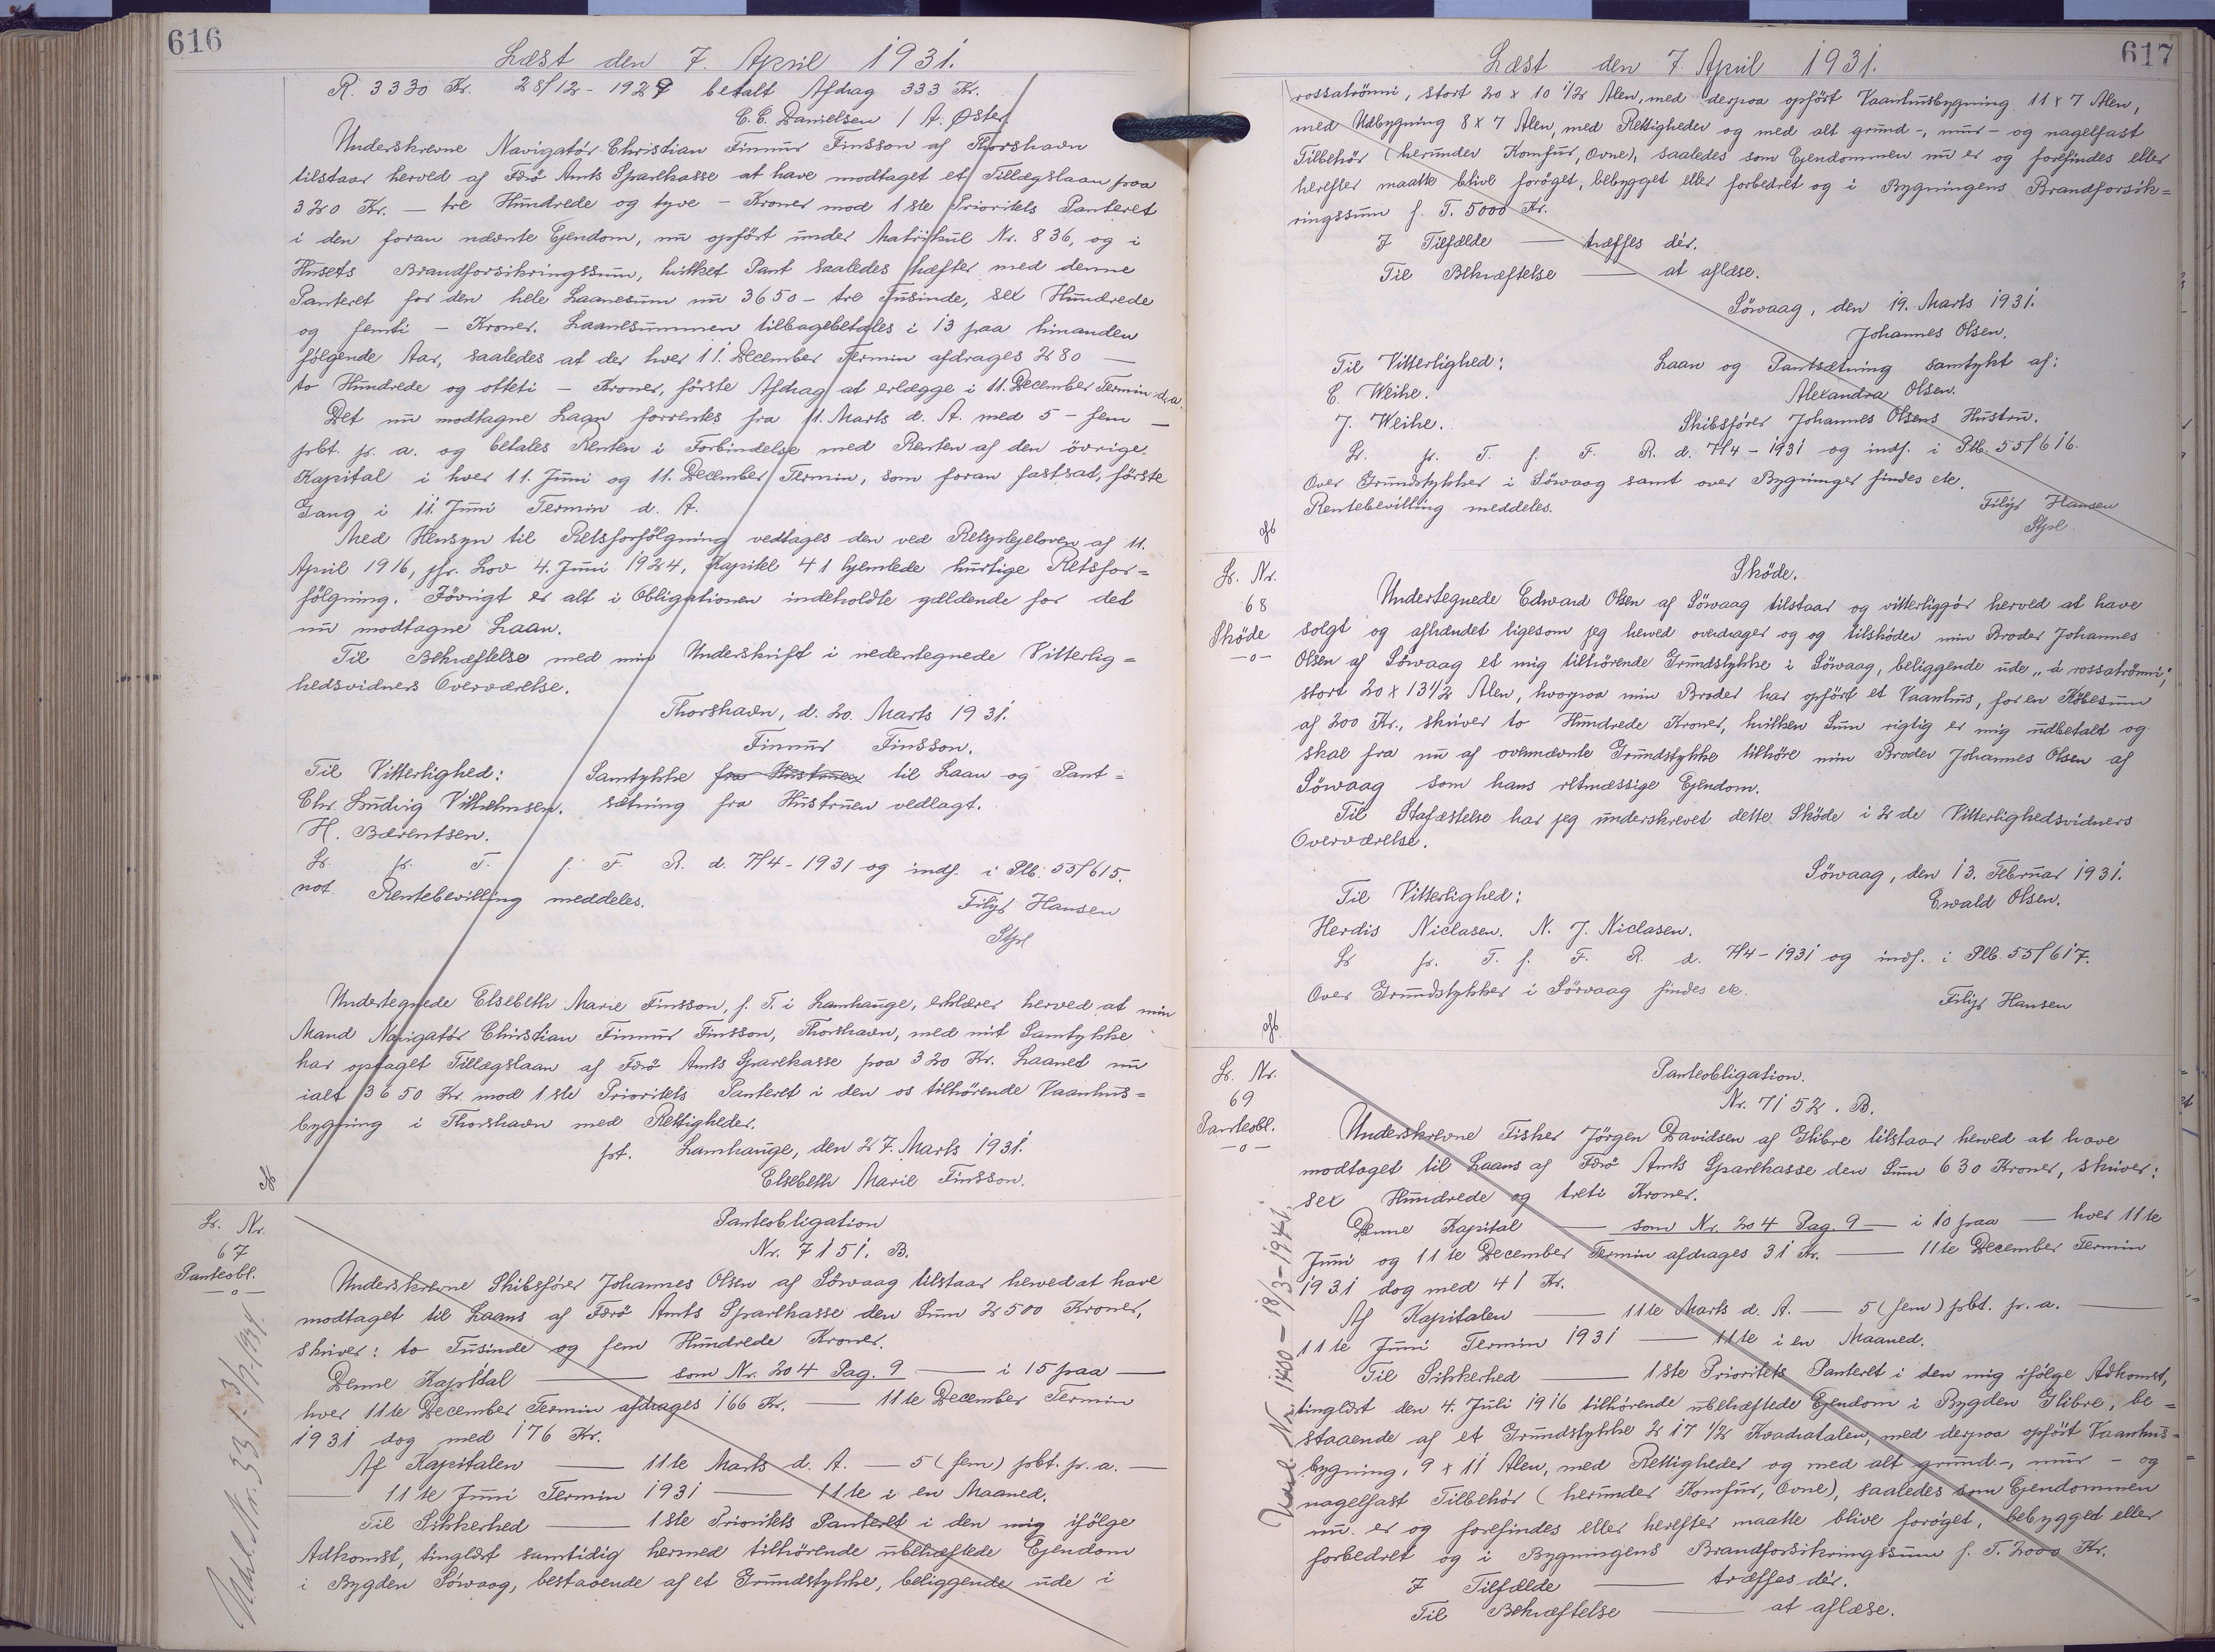 616
Læst den 7. April 1931.
R. 3330 Kr. 28/12-1929 betalt Afdrag 333 Kr.
C. C. Danielsen / A. Øster
Underskrevne Navigatör Christian Finnur Finsson af Thorshavn
tilstaar herved af Færö Amts Sparekasse at have modtaget et Tillægslaan paa
320 Kr. — tre Hundrede og tyve — Kroner mod 1ste Prioritets Panteret
i den foran nævnte Ejendom, nu opført under Matrikul Nr. 836, og i
Husets Brandforsikringssum, hvilket Pant saaledes hæfter med denne
Panteret for den hele Laanesum nu 3650 - tre Tusinde, sex Hundrede
og femti - Kroner. Laanesummen tilbagebetales i 13 paa hinanden
følgende Aar, saaledes at der hver 11. December Termin afdrages 280 —
to Hundrede og otteti - Kroner, förste Afdrag at erlægge i 11. December Termin d. a.
Det nu modtagne Laan forrentes fra 11. Marts d. A. med 5 - fem —
pbt. pr. a. og betales Renten i Forbindelse med Renten af den övrige
Kapital i hver 11. Juni og 11. December Termin, som foran fastsad, förste
Gang i 11 Juni Termin d. A.
Med Hensyn til Retsforfölgning vedtages den ved Retsplejeloven af 11.
April 1916, jfr. Lov 4. Juni 1924, Kapitel 41 hjemlede hurtige Retsfor=
fölgning. Iövrigt er alt i Obligationen indeholdte gældende for det
nu modtagne Laan.
Til Bekræftelse med min Underskrift i nedentegnede Vitterlig=
hedsvidners Overværelse.
Thorshavn, d. 20. Marts 1931.
Finnur Finsson.
Til Vitterlighed: Samtykke fra Hustruen til Laan og Pant=
Chr. Ludvig Vilhelmsen. sætning fra Hustruen vedlagt.
H. Bærentsen.
Lr. pr. T. f. F. R. d. 7/4-1931 og indf. i Plb. 55/615.
not. Rentebevilling meddeles.
Filip Hansen
Stpl
Undertegnede Elsebeth Marie Finsson, f. T. i Lamhauge, erklærer herved at min
Mand Navigatör Christian Finnur Finsson, Thorshavn, med mit Samtykke
har optaget Tillægslaan af Færö Amts Sparekasse paa 320 Kr. Laanet nu
ialt 3650 Kr. mod 1ste Prioritets Panteret i den os tilhörende Vaanhus=
bygning i Thorshavn med Rettigheder.
pt. Lamhauge, den 27. Marts 1931.
Elsebeth Marie Finsson.
Lr. Nr.
67
Panteobl.
—o—
Panteobligation
Nr. 7151. B.
Underskrevne Skibsfører Johannes Olsen af Sörvaag tilstaar herved at have
modtaget til Laans af Færö Amts Sparekasse den Sum 2500 Kroner,
skriver: to Tusinde og fem Hundrede Kroner.
Denne Kapital — som Nr. 204 Pag. 9 — i 15 paa —
hver 11te December Termin afdrages 166 Kr. — 11te December Termin
1931 dog med 176 Kr.
Af Kapitalen — 11te Marts d. A. — 5 (fem) pbt. p. a. —
— 11te Juni Termin 1931 — 11te i en Maaned.
Til Sikkerhed — 1ste Prioritets Panteret i den mig ifölge
Adkomst, tinglæst samtidig hermed tilhörende ubehæftede Ejendom
i Bygden Sörvaag, bestaaende af et Grundstykke, beliggende ude i
617
Læst den 7 April 1931.
rossatrömi, stort 20 x 10 1/2 Alen, med derpaa opfört Vaanhusbygning 11 x 7 Alen,
med Udbygning 8 x 7 Alen, med Rettigheder og med alt grund-, mur- og nagelfast
Tilbehör (herunder Komfur, Ovne), saaledes som Ejendommen nu er og forefindes eller
herefter maatte blive foröget, bebygget eller forbedret og i Bygningens Brandforsik=
ringssum f. T. 5000 Kr.
I Tilfælde — træffes dér.
Til Bekræftelse — at aflæse.
Sörvaag, den 19. Marts 1931.
Johannes Olsen.
Til Vitterlighed: Laan og Pantsætning samtykt af:
E. Weihe. Alexandra Olsen.
J. Weihe. Skibsfører Johannes Olsens Hustru.
Lr. pr. T. f. F. R. d. 7/4-1931 og indf. i Plb. 55/616.
Over Grundstykker i Sörvaag samt over Bygninger findes etc.
Rentebevilling meddeles.
Filip Hansen
Stpl
Lr. Nr.
68
Sköde
—o—
Sköde.
Undertegnede Edward Olsen af Sörvaag tilstaar og vitterliggör herved at have
solgt og afhændet ligesom jeg herved overdrager og og tilsköder min Broder Johannes
Olsen af Sörvaag et mig tilhörende Grundstykke i Sörvaag, beliggende ude „á rossatrömi",
stort 20 x 13 1/2 Alen, hvorpaa min Broder har opfört et Vaanhus, for en Købesum
af 200 Kr., skriver to Hundrede Kroner, hvilken Sum rigtig er mig udbetalt og
skal fra nu af ovennævnte Grundstykke tilhöre min Broder Johannes Olsen af
Sörvaag som hans retmæssige Ejendom.
Til Stafæstelse har jeg underskrevet dette Sköde i 2 de Vitterlighedsvidners
Overværelse.
Sörvaag, den 13. Februar 1931.
Til Vitterlighed: Ewald Olsen.
Herdis Niclasen. N. J. Niclasen.
Lr. pr. T. f. F. R. d. 7/4-1931 og indf. i Plb. 55/617.
Over Grundstykker i Sörvaag findes etc.
Filip Hansen
Lr. Nr.
69
Panteobl.
—o—
Panteobligation.
Nr. 7152. B.
Underskrevne Fisker Jörgen Davidsen af Glibre tilstaar herved at have
modtaget til Laans af Færö Amts Sparekasse den Sum 630 Kroner, skriver:
sex Hundrede og treti Kroner.
Denne Kapital — som Nr. 204 Pag. 9 — i 10 paa — hver 11te
Juni og 11te December Termin afdrages 31 Kr. — 11te December Termin
1931 dog med 41 Kr.
Af Kapitalen — 11te Marts d. A. — 5 (fem) pbt. p. a. —
11te Juni Termin 1931 — 11te i en Maaned.
Til Sikkerhed — 1ste Prioritets Panteret i den mig ifölge Adkomst,
tinglæst den 4. Juli 1916 tilhörende ubehæftede Ejendom i Bygden Glibre, be=
staaende af et Grundstykke 217 1/2 Kvadratalen, med derpaa opfört Vaanhus=
bygning, 9 x 11 Alen, med Rettigheder og med alt grund-, mur- og
nagelfast Tilbehör (herunder Komfur, Ovne), saaledes som Ejendommen
nu er og forefindes eller herefter maatte blive foröget, bebygget eller
forbedret og i Bygningens Brandforsikringssum f. T. 2000 Kr.
I Tilfælde — træffes dér.
Til Bekræftelse — at aflæse.